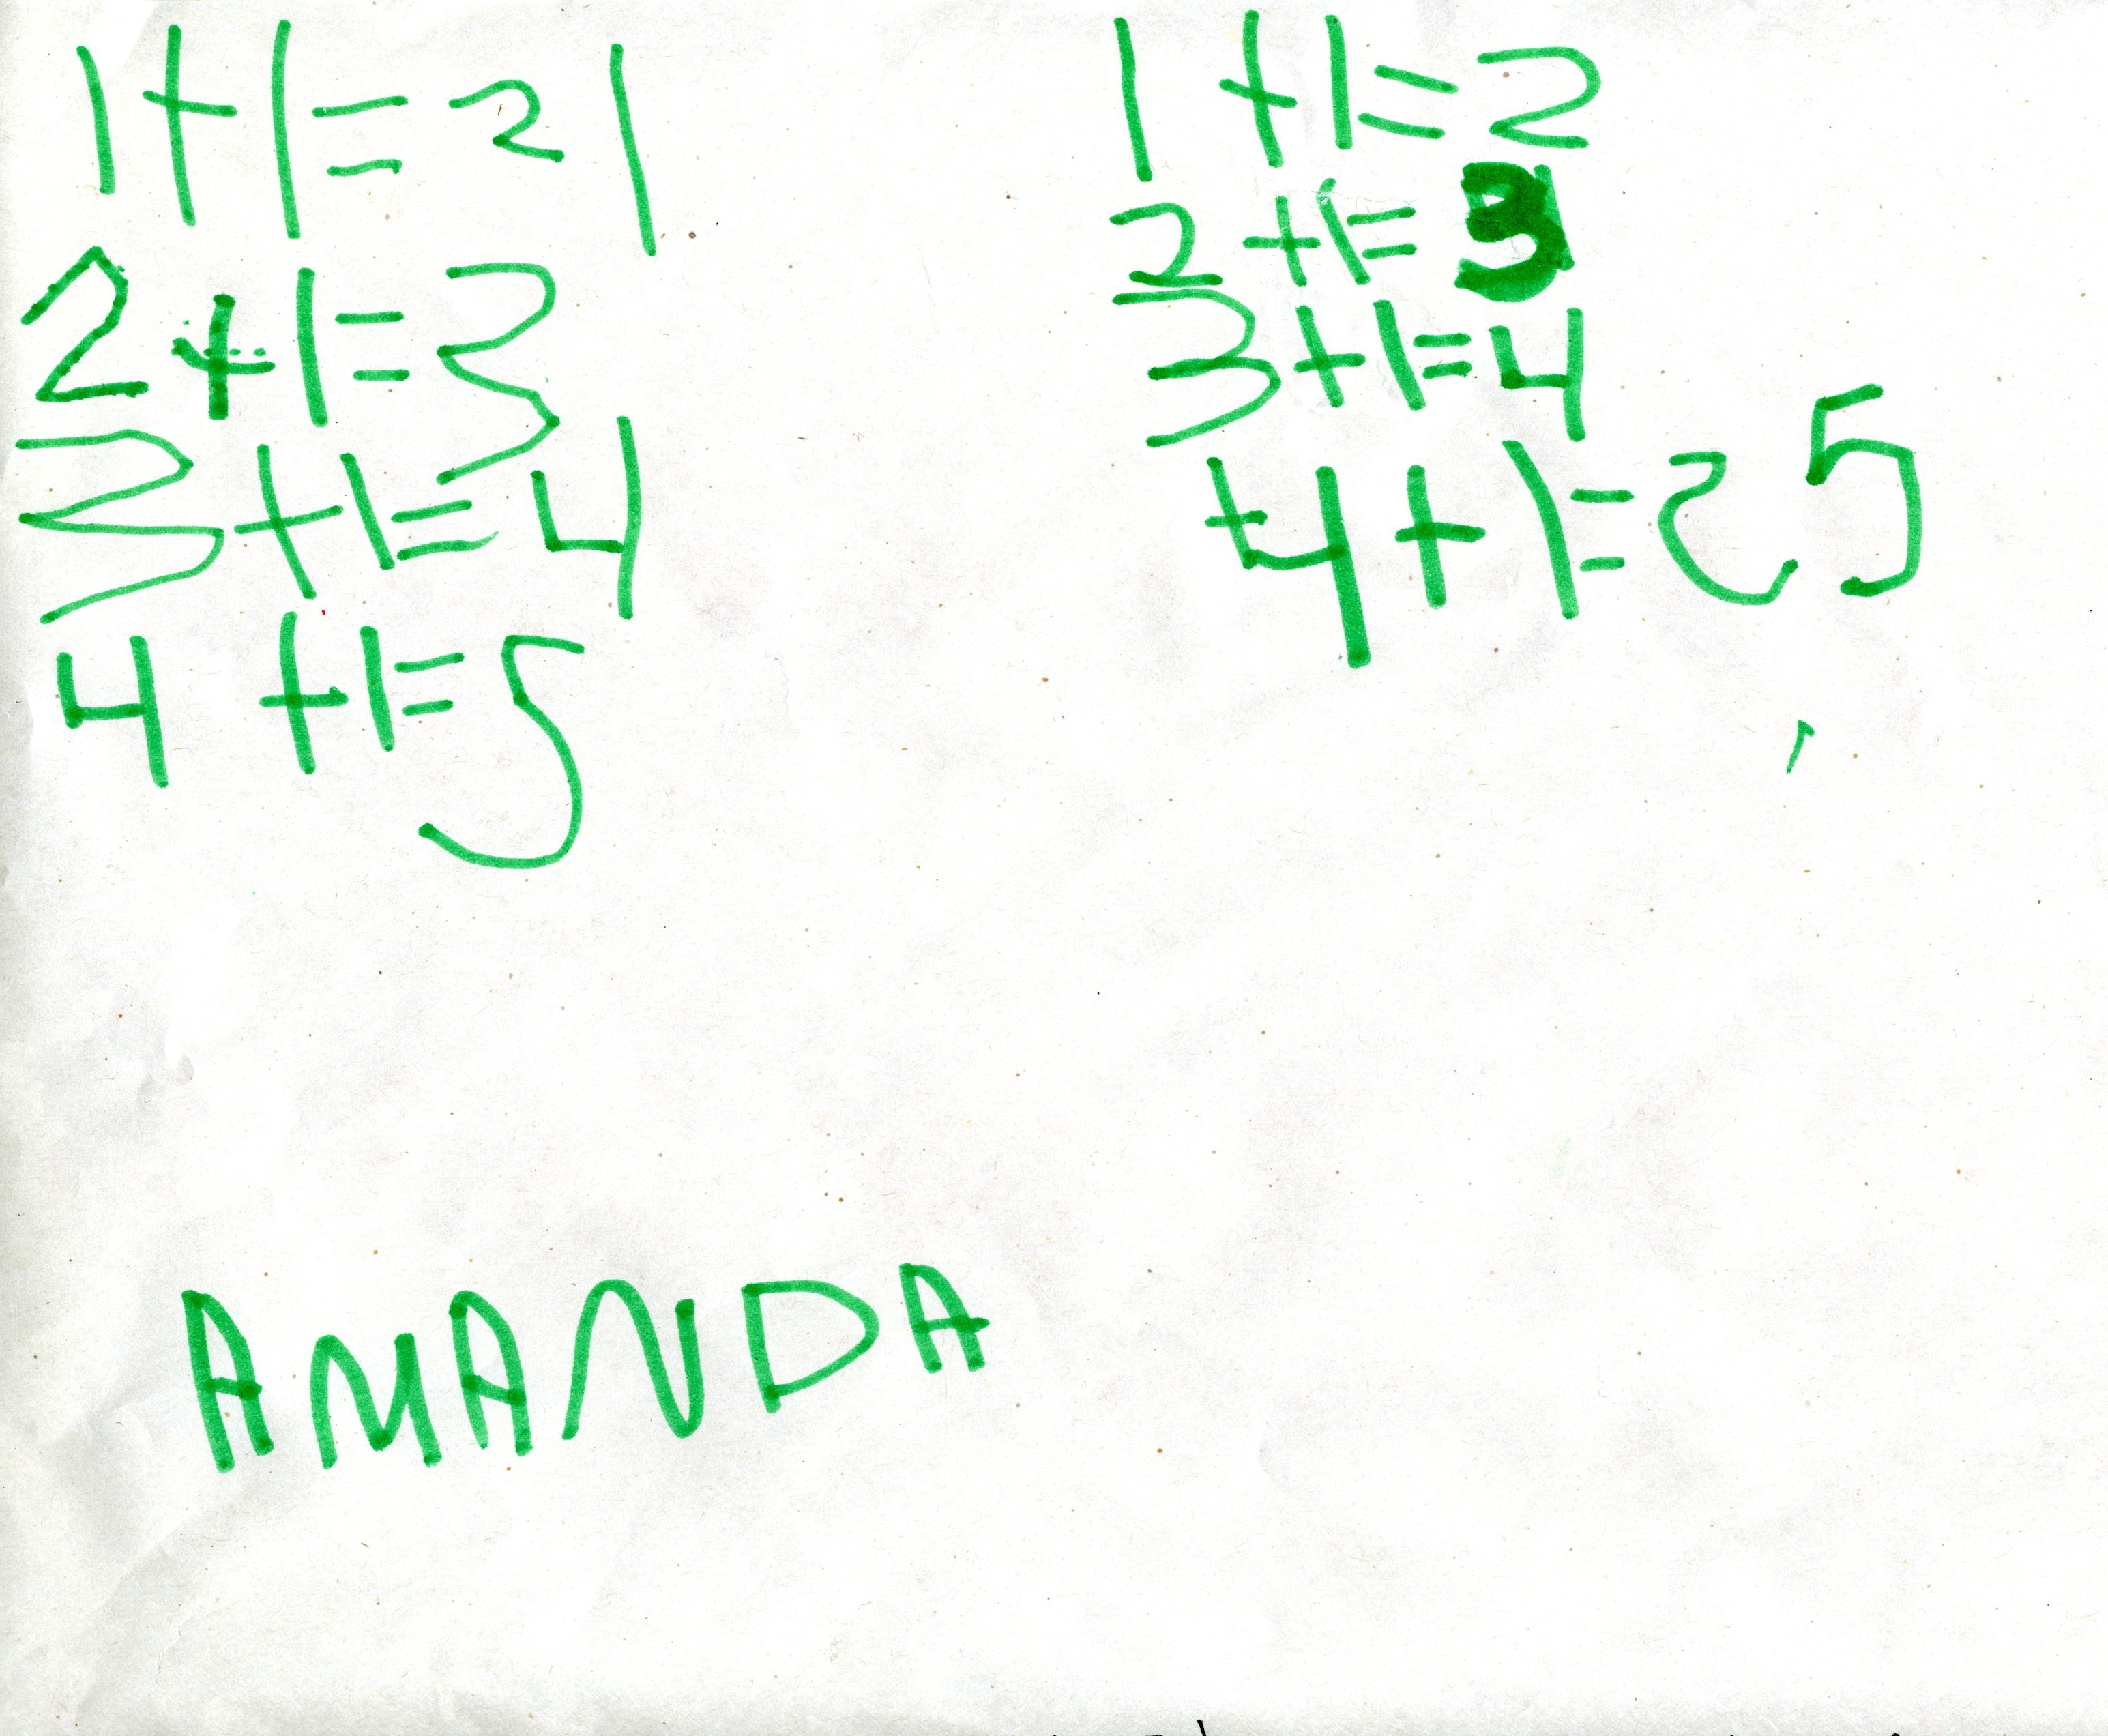 1+1=21
2+1=3
3+1=4
4+1=5
1+1=2
2+1=3
3+1=4
4+1= 5
AMANDA